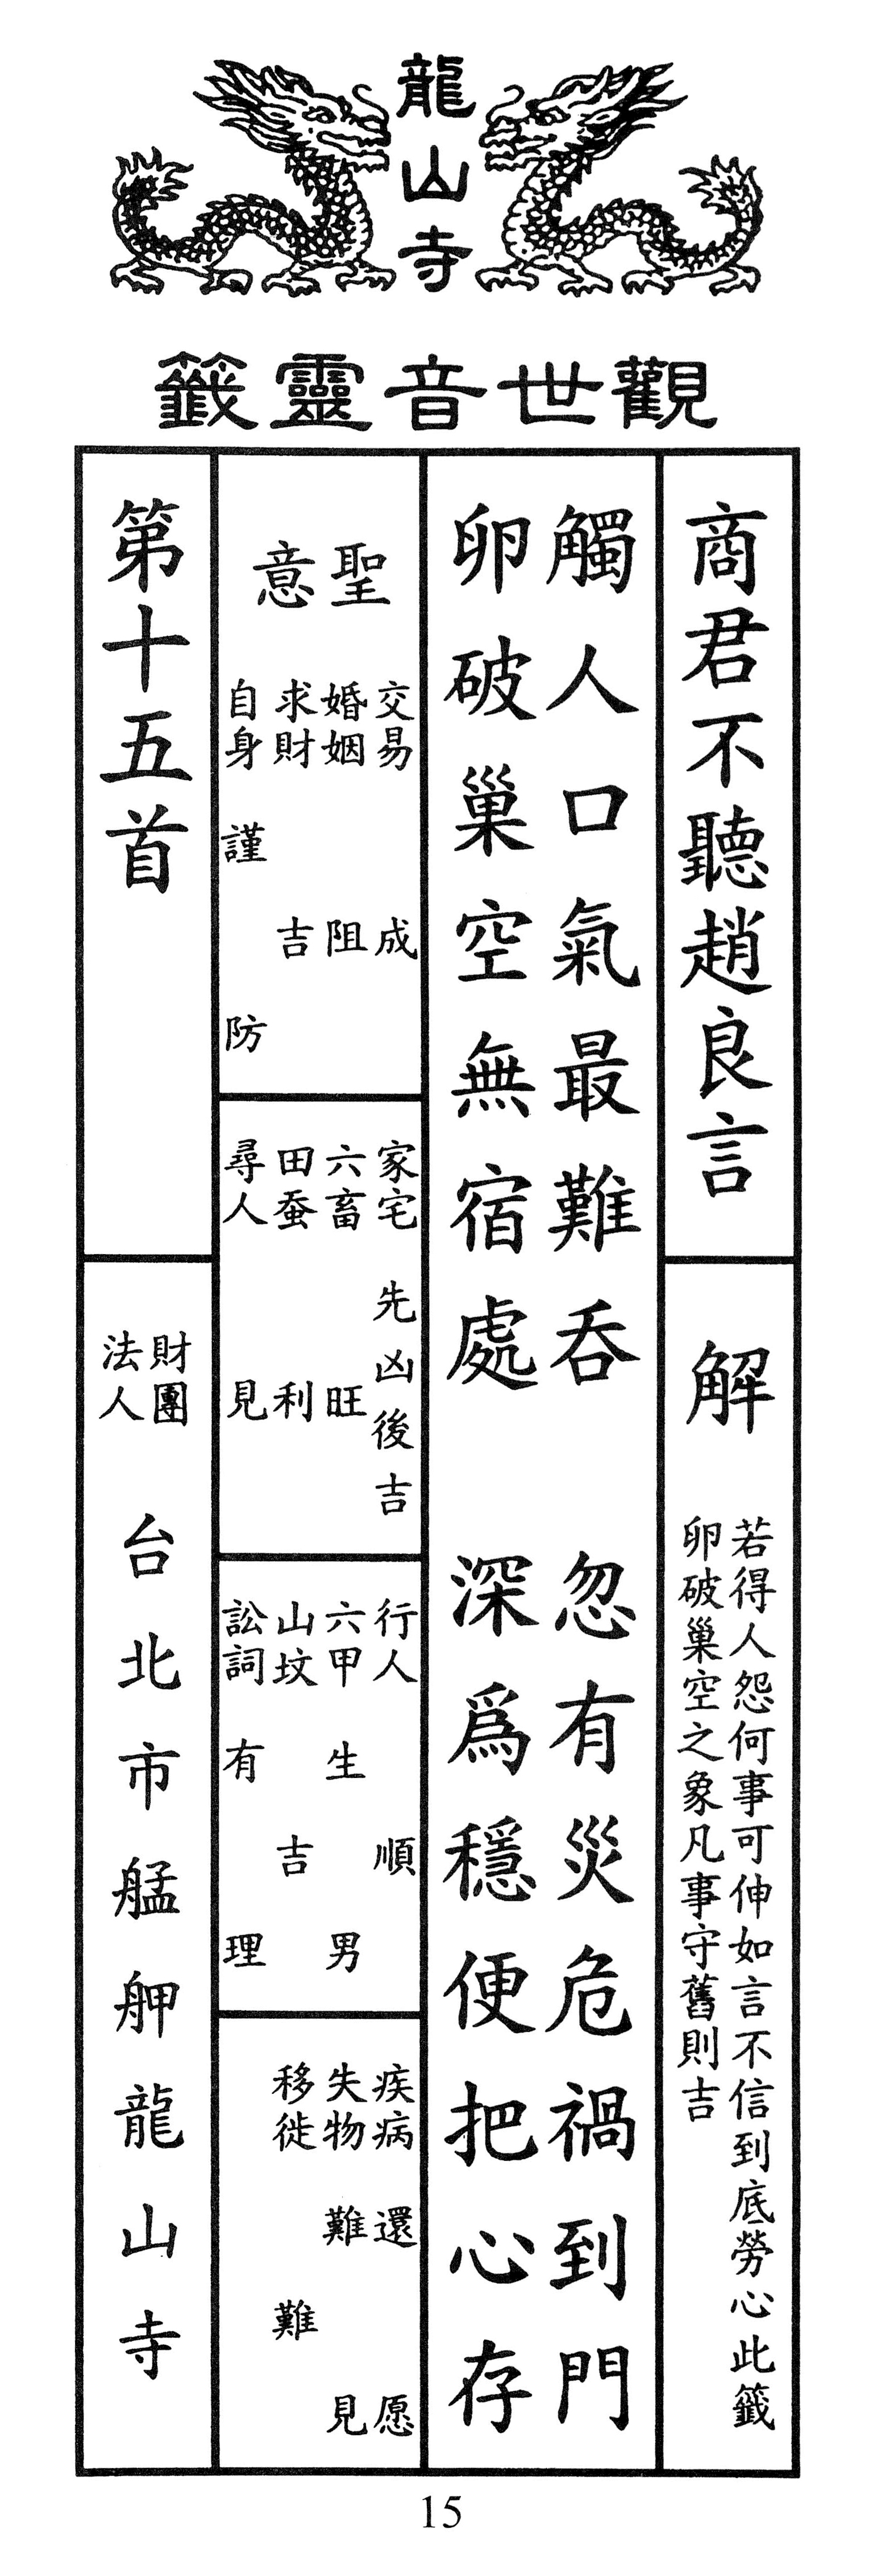 龍山寺
觀世音靈籤
商君不聽趙良言
解
若得人怨何事可伸如言不信到底勞心此籤
卵破巢空之象凡事守舊則吉
觸人口氣最難吞　忽有災危禍到門
卵破巢空無宿處　深爲穩便把心存
聖意
交易　成
婚姻　阻
求財　吉
自身　謹防
家宅　先凶後吉
六畜　旺
田蚕　利
尋人　見
行人　順
六甲　生男
山坟　吉
訟詞　有理
疾病　還愿
失物　難見
移徙　難
第十五首
財團法人
台北市艋舺龍山寺
15